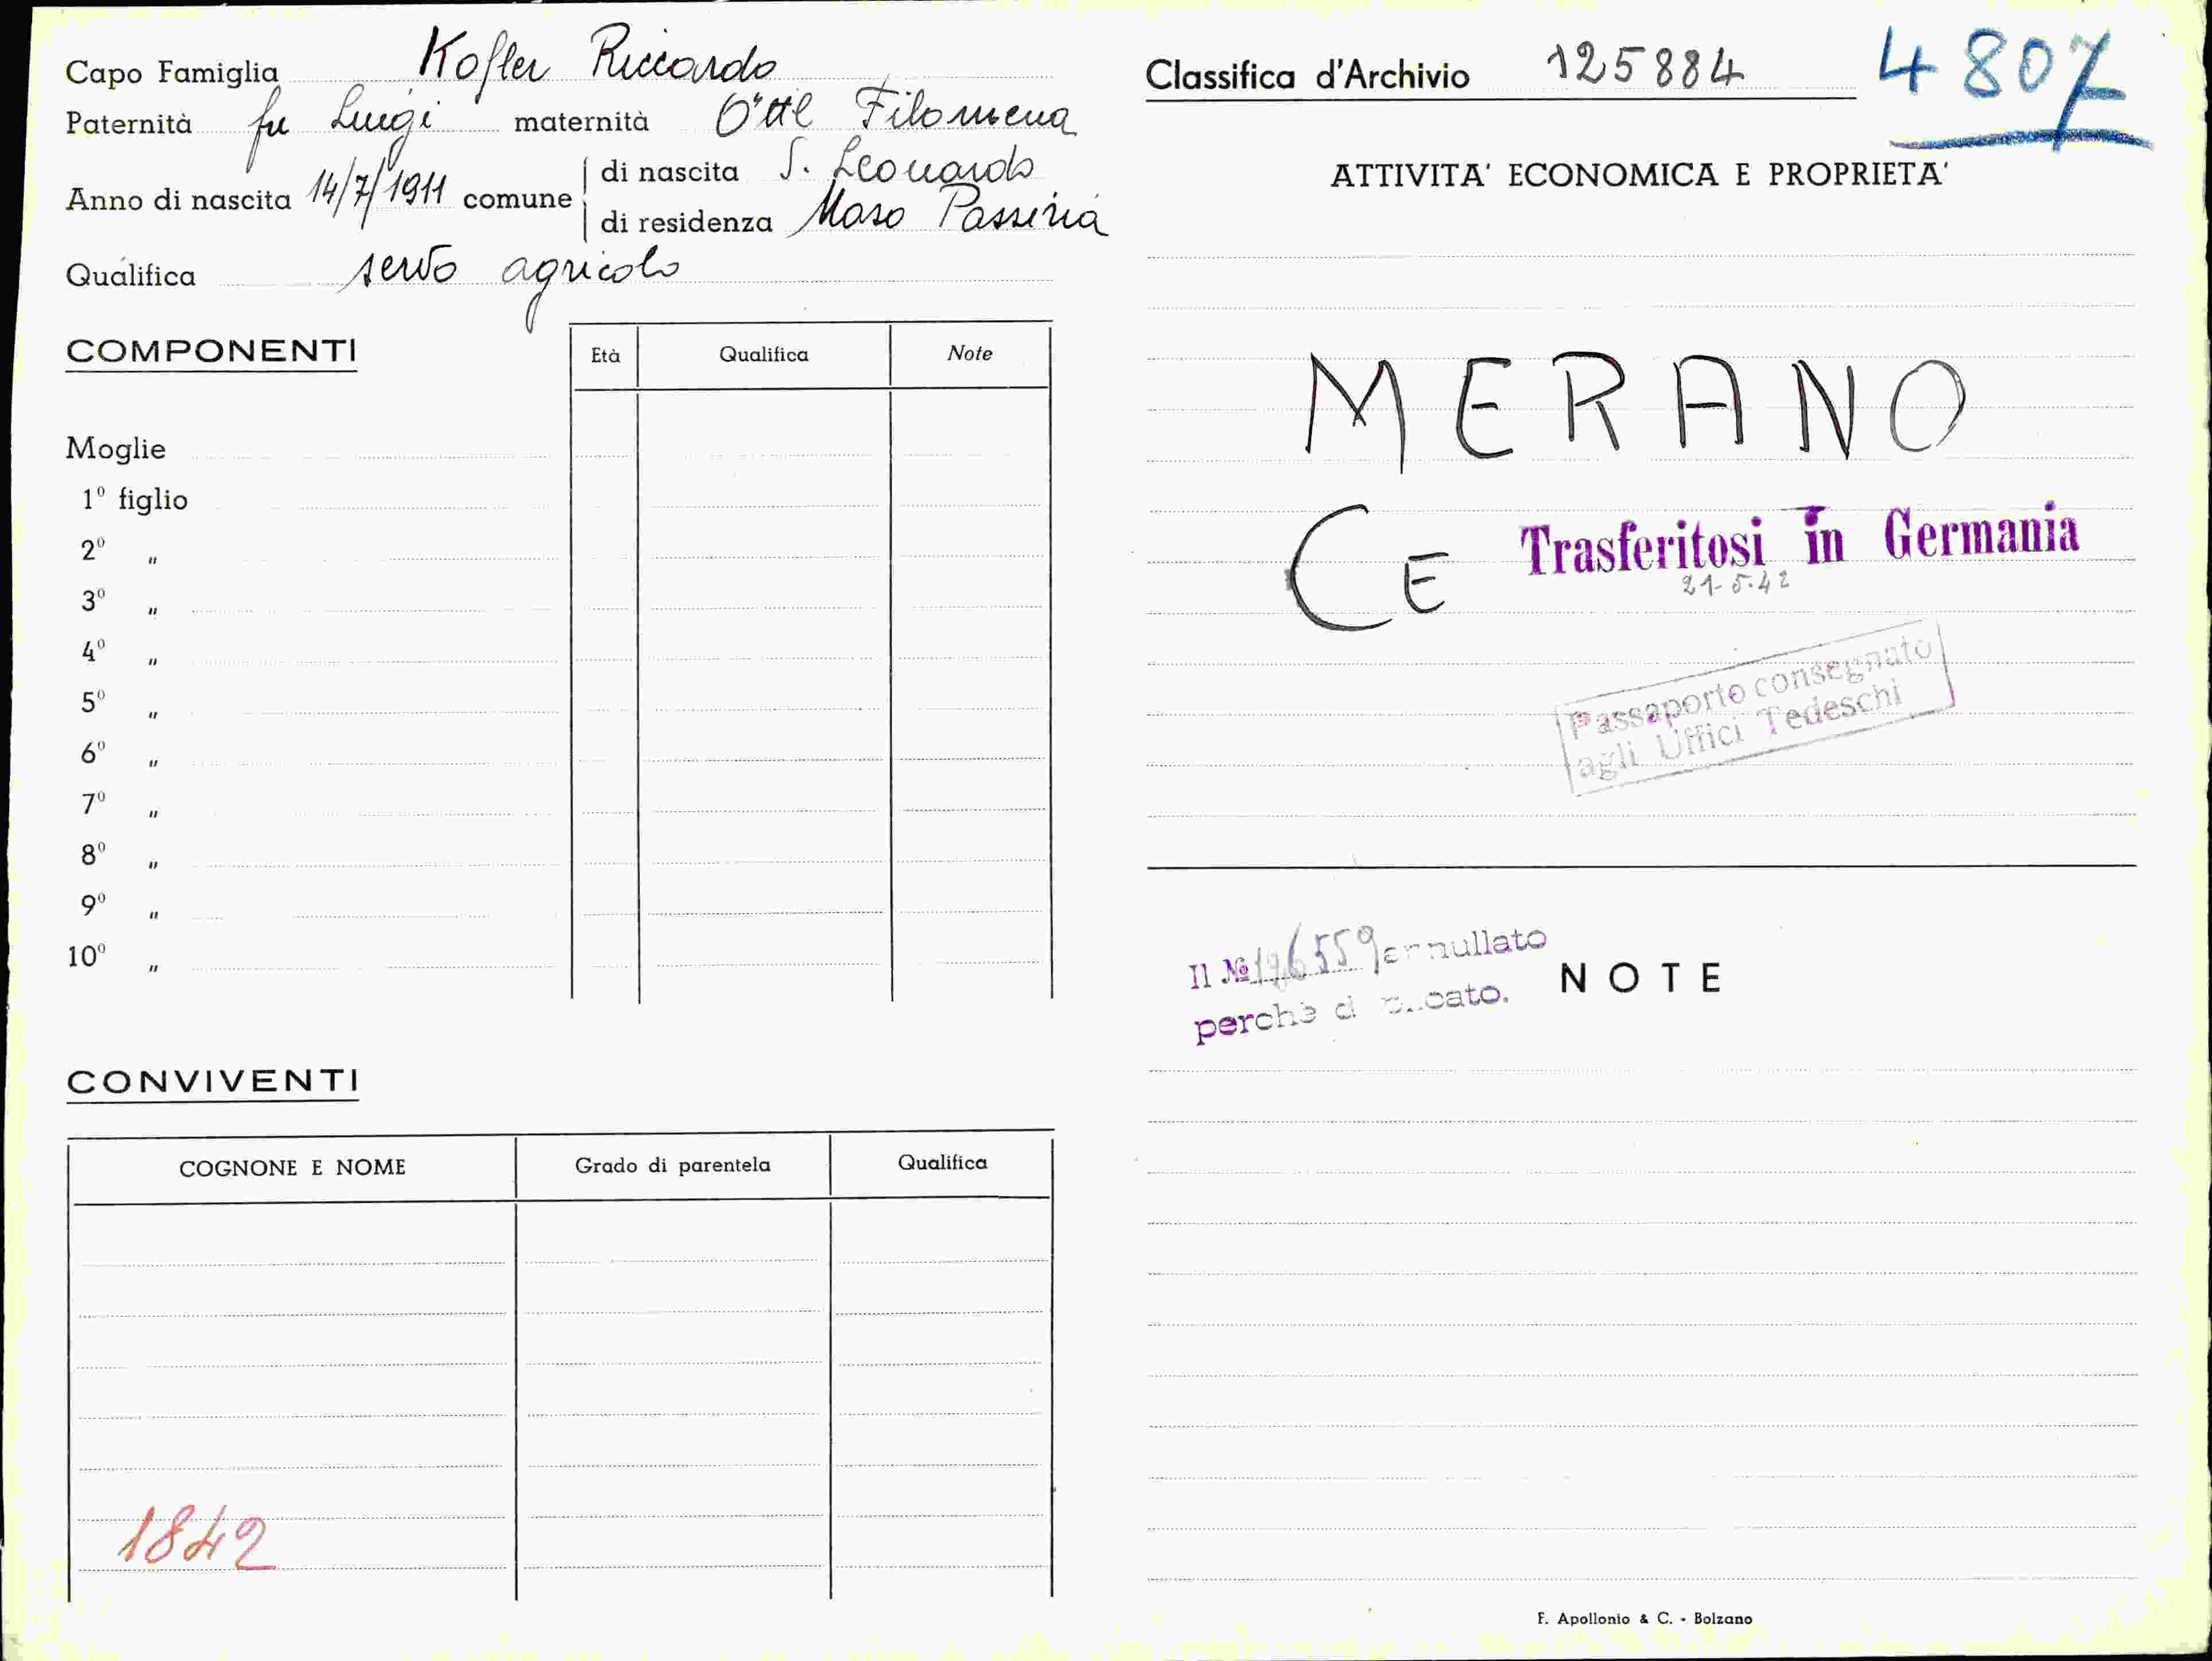 Capo Famiglia Kofler Riccardo
Paternità fu Luigi maternità Öttl Filomena
Anno di nascita 14/7/1911 comune di nascita S. Leonardo
di residenza Maso Passiria
Qualifica servo agricolo
COMPONENTI
Età Qualifica Note
Moglie
1º figlio
2º "
3º "
4º "
5º "
6º "
7º "
8º "
9º "
10º "
CONVIVENTI
COGNONE E NOME Grado di parentela Qualifica
1842
Classifica d'Archivio 125884 4807
ATTIVITA' ECONOMICA E PROPRIETA'
MERANO
CE Trasferitosi in Germania
21-5-42
Passaporto consegnato
agli Uffici Tedeschi
Il № 196559 annullato
perchè
NOTE
F. Apollonio & C. - Bolzano